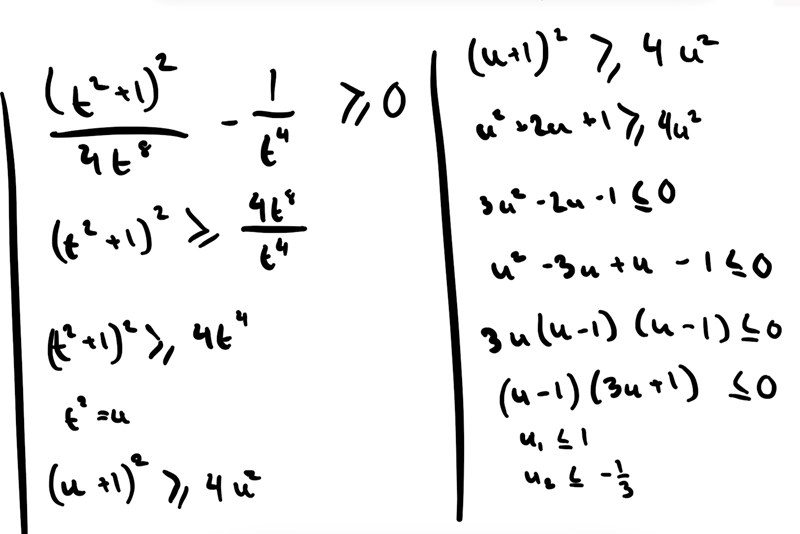 (t²+1)²/4t⁸ - 1/t⁴ ⩾ 0
(t²+1)² ⩾ 4t⁸/t⁴
(t²+1)² ⩾ 4t⁴
t² = u
(u+1)² ⩾ 4u²
(u+1)² ⩾ 4u²
u²+2u+1 ⩾ 4u²
3u²-2u-1 ≤ 0
u²-3u+u-1 ≤ 0
3u(u-1) (u-1) ≤ 0
(u-1)(3u+1) ≤ 0
u₁ ≤ 1
u₂ ≤ -1/3